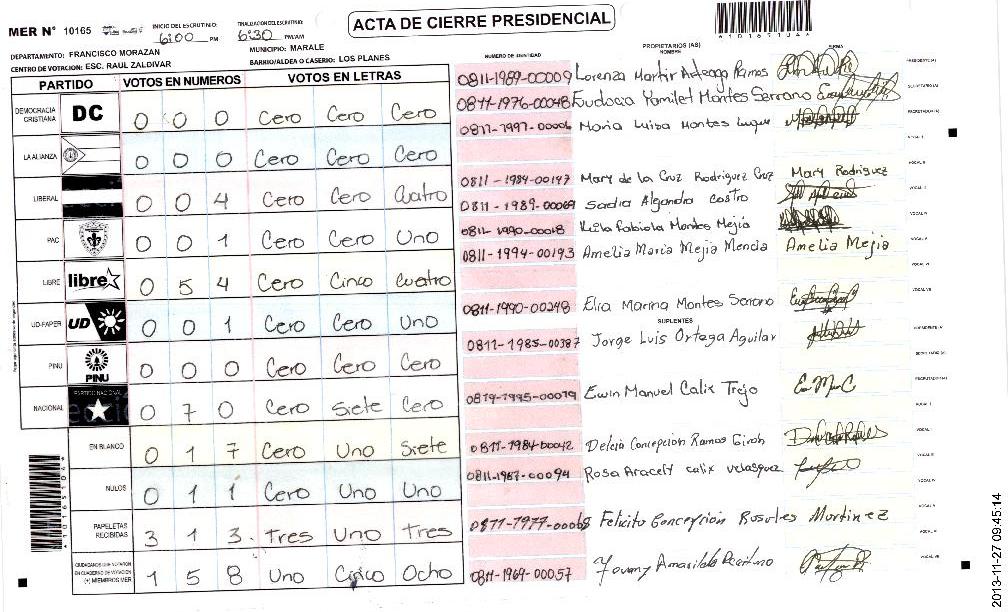 ACTA DE CIERRE PRESIDENCIAL
MER N° 10165
INICIO DEL ESCRUTINIO: 6:00 PM
FINALIZACION DEL ESCRUTINIO: 6:30 PM/AM
DEPARTAMENTO: FRANCISCO MORAZAN
MUNICIPIO: MARALE
CENTRO DE VOTACION: ESC. RAUL ZALDIVAR
BARRIO/ALDEA O CASERIO: LOS PLANES
PARTIDO VOTOS EN NUMEROS VOTOS EN LETRAS
DEMOCRACIA CRISTIANA DC 0 0 0 Cero Cero Cero
LA ALIANZA 0 0 0 Cero Cero Cero
LIBERAL 0 0 4 Cero Cero Cuatro
PAC 0 0 1 Cero Cero Uno
LIBRE libre 0 5 4 Cero Cinco Cuatro
UD-FAPER UD 0 0 1 Cero Cero Uno
PINU PINU 0 0 0 Cero Cero Cero
NACIONAL PARTIDO NACIONAL 0 7 0 Cero Siete Cero
EN BLANCO 0 1 7 Cero Uno Siete
NULOS 0 1 1 Cero Uno Uno
PAPELETAS RECIBIDAS 3 1 3 Tres Uno Tres
CIUDADANOS QUE VOTARON EN CUADERNO DE VOTACION (+) MIEMBROS MER 1 5 8 Uno Cinco Ocho
NUMERO DE IDENTIDAD PROPIETARIOS (AS) NOMBRE FIRMA
0811-1989-00009 Lorenza Martir Arteaga Ramos PRESIDENTE(A)
0811-1976-00048 Eudocia Yamilet Montes Serrano SECRETARIO(A)
0811-1997-00006 Maria Luisa Montes Luque ESCRUTADOR(A)
VOCAL I
VOCAL II
0811-1984-00147 Mary de la Cruz Rodriguez Cruz Mary Rodriguez
0811-1989-00069 Sadia Alejandra Castro
0811-1990-00018 Keila Fabiola Montes Mejia
0811-1994-00193 Amelia Maria Mejia Mencia Amelia Mejia
0811-1990-00248 Elia Marina Montes Serrano
SUPLENTES
0811-1985-00387 Jorge Luis Ortega Aguilar
0819-1995-00079 Ewin Manuel Calix Trejo
0811-1984-00042 Delcia Concepcion Ramos Giron
0811-1967-00094 Rosa Aracely calix velasquez
0811-1977-00068 Felicito Concepcion Rosales Martinez
0811-1969-00057 Yovany Amarildo
2013-11-27 09:45:14